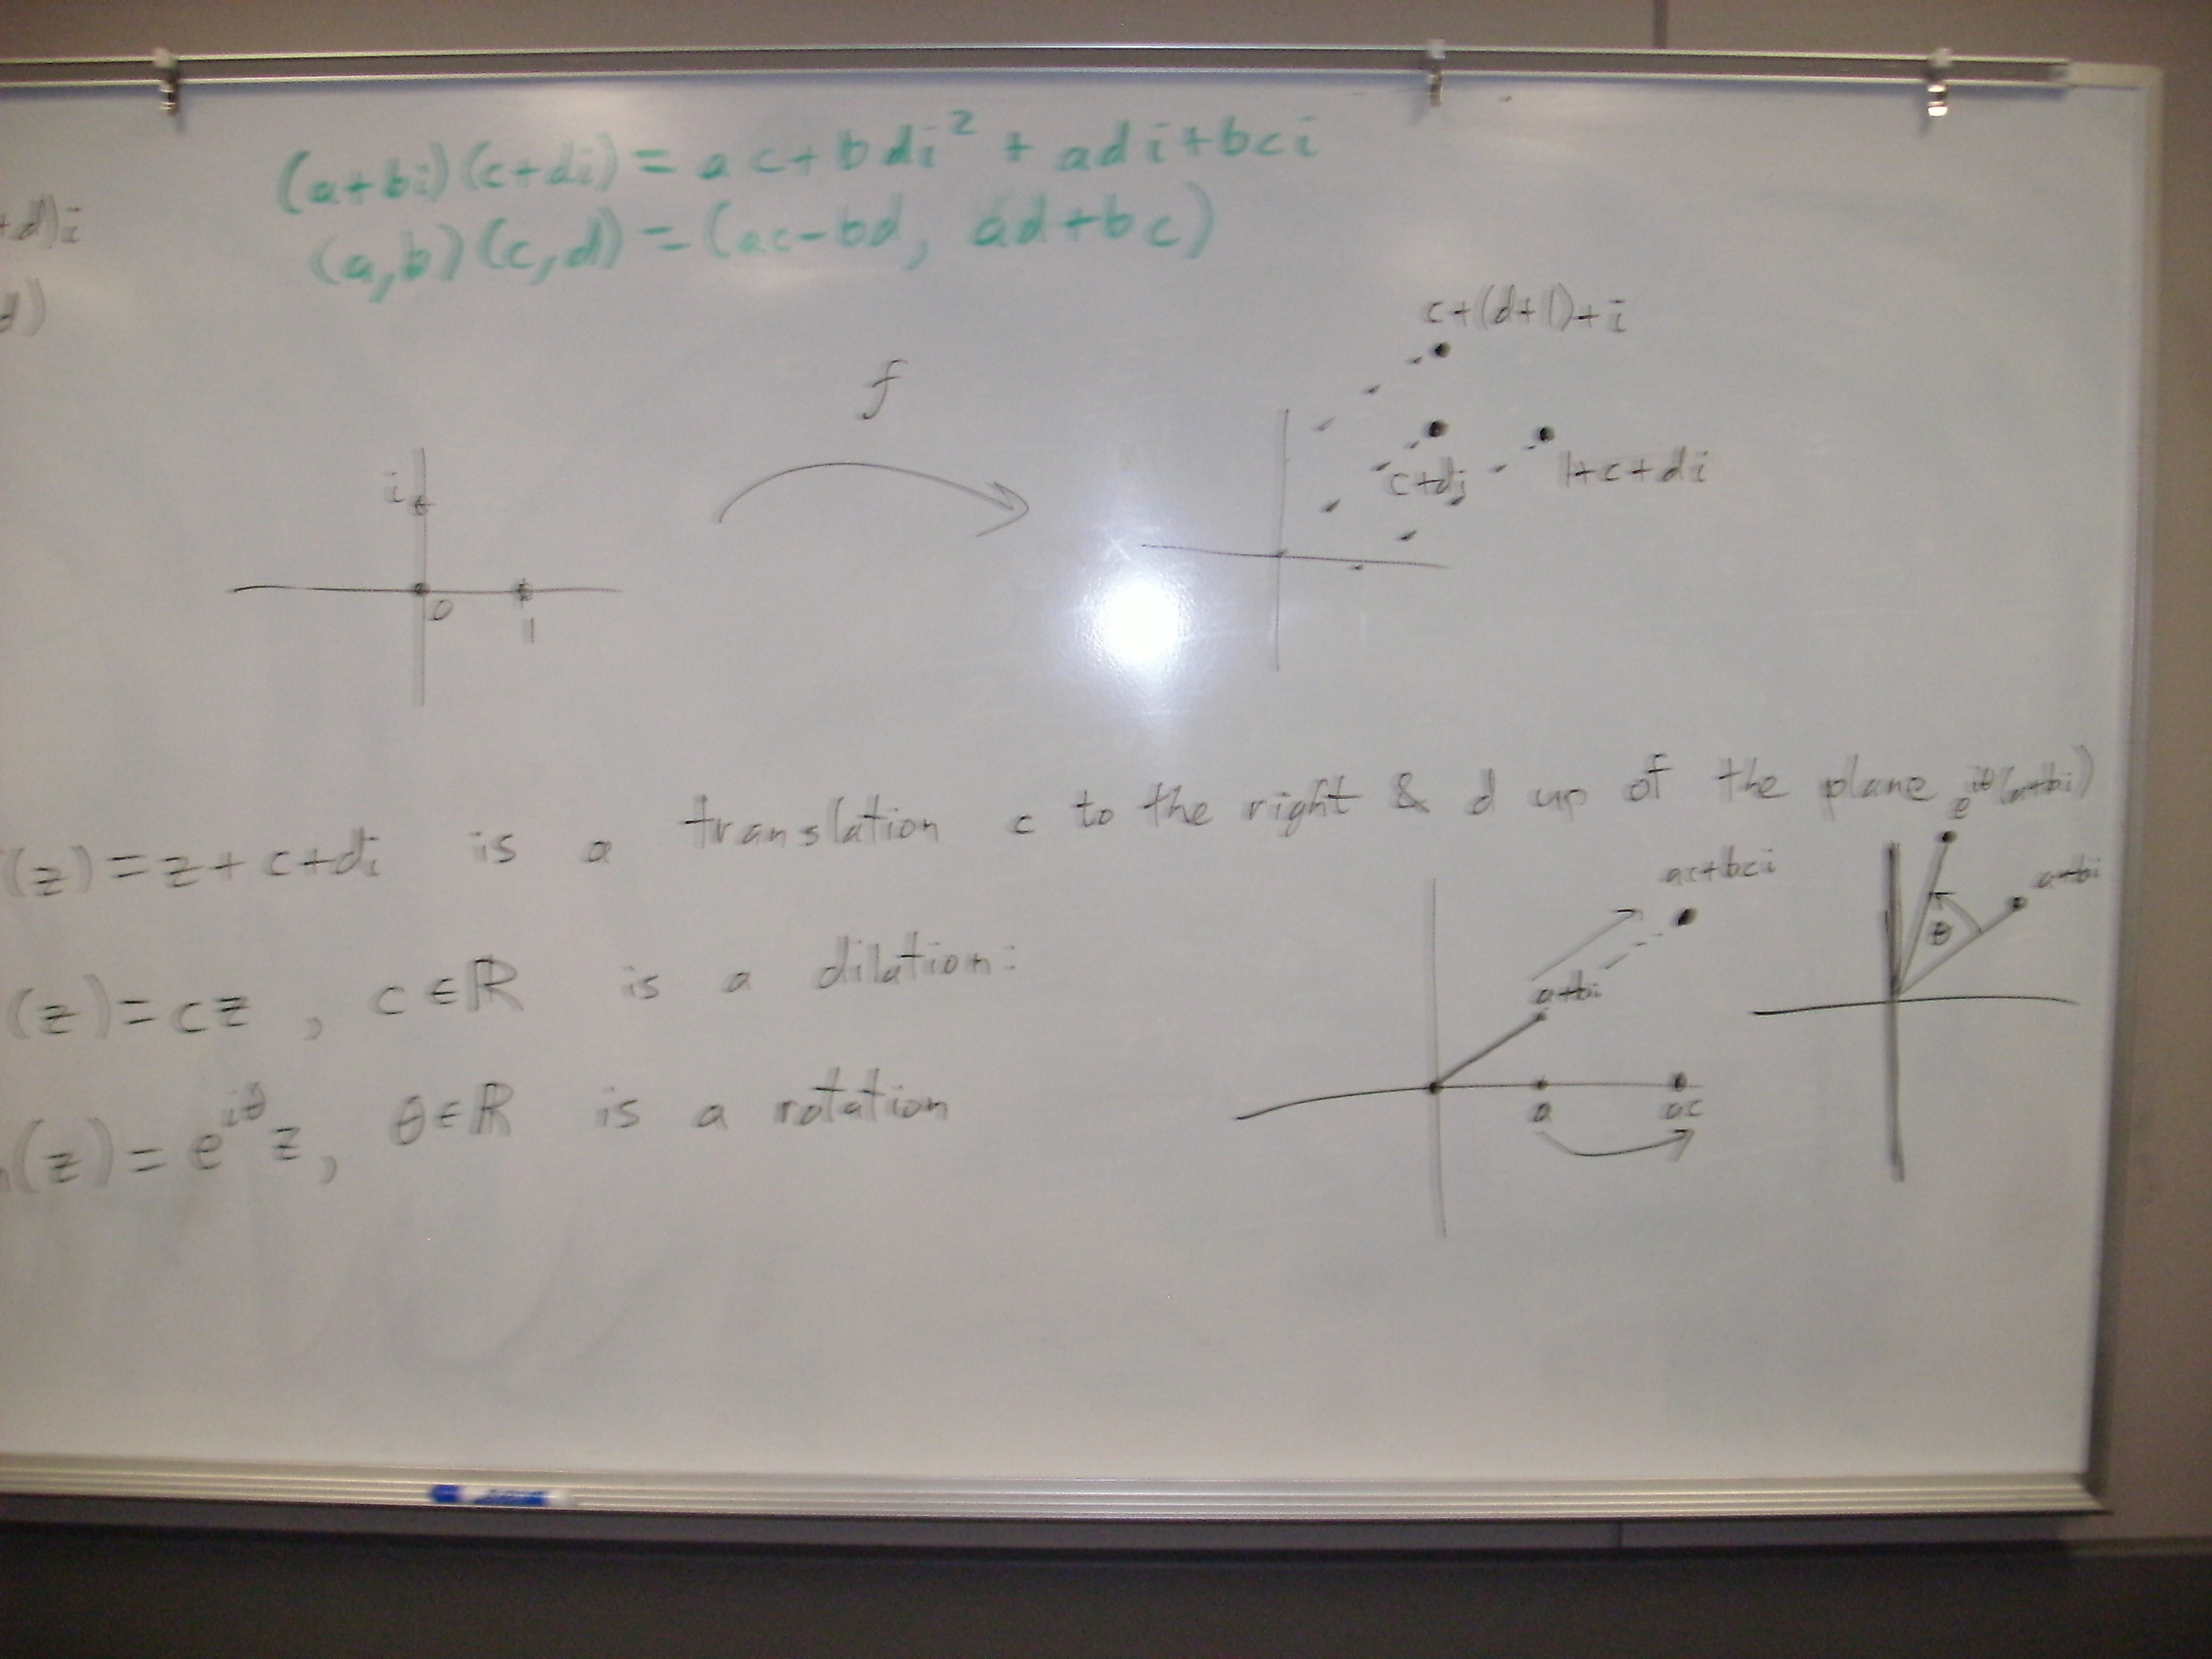 (a+bi)(c+di) = ac+bdi² + adi+bci
+d)i
(a,b)(c,d) = (ac-bd, ad+bc)
d)
c+(d+1)+i
f
i
c+di
1+c+di
0
1
(z)=z+c+di is a translation c to the right & d up of the plane
e^{iθ}(a+bi)
ac+bci
a+bi
θ
(z)=cz, c∈ℝ is a dilation:
a+bi
a
ac
h(z)=e^{iθ}z, θ∈ℝ is a rotation